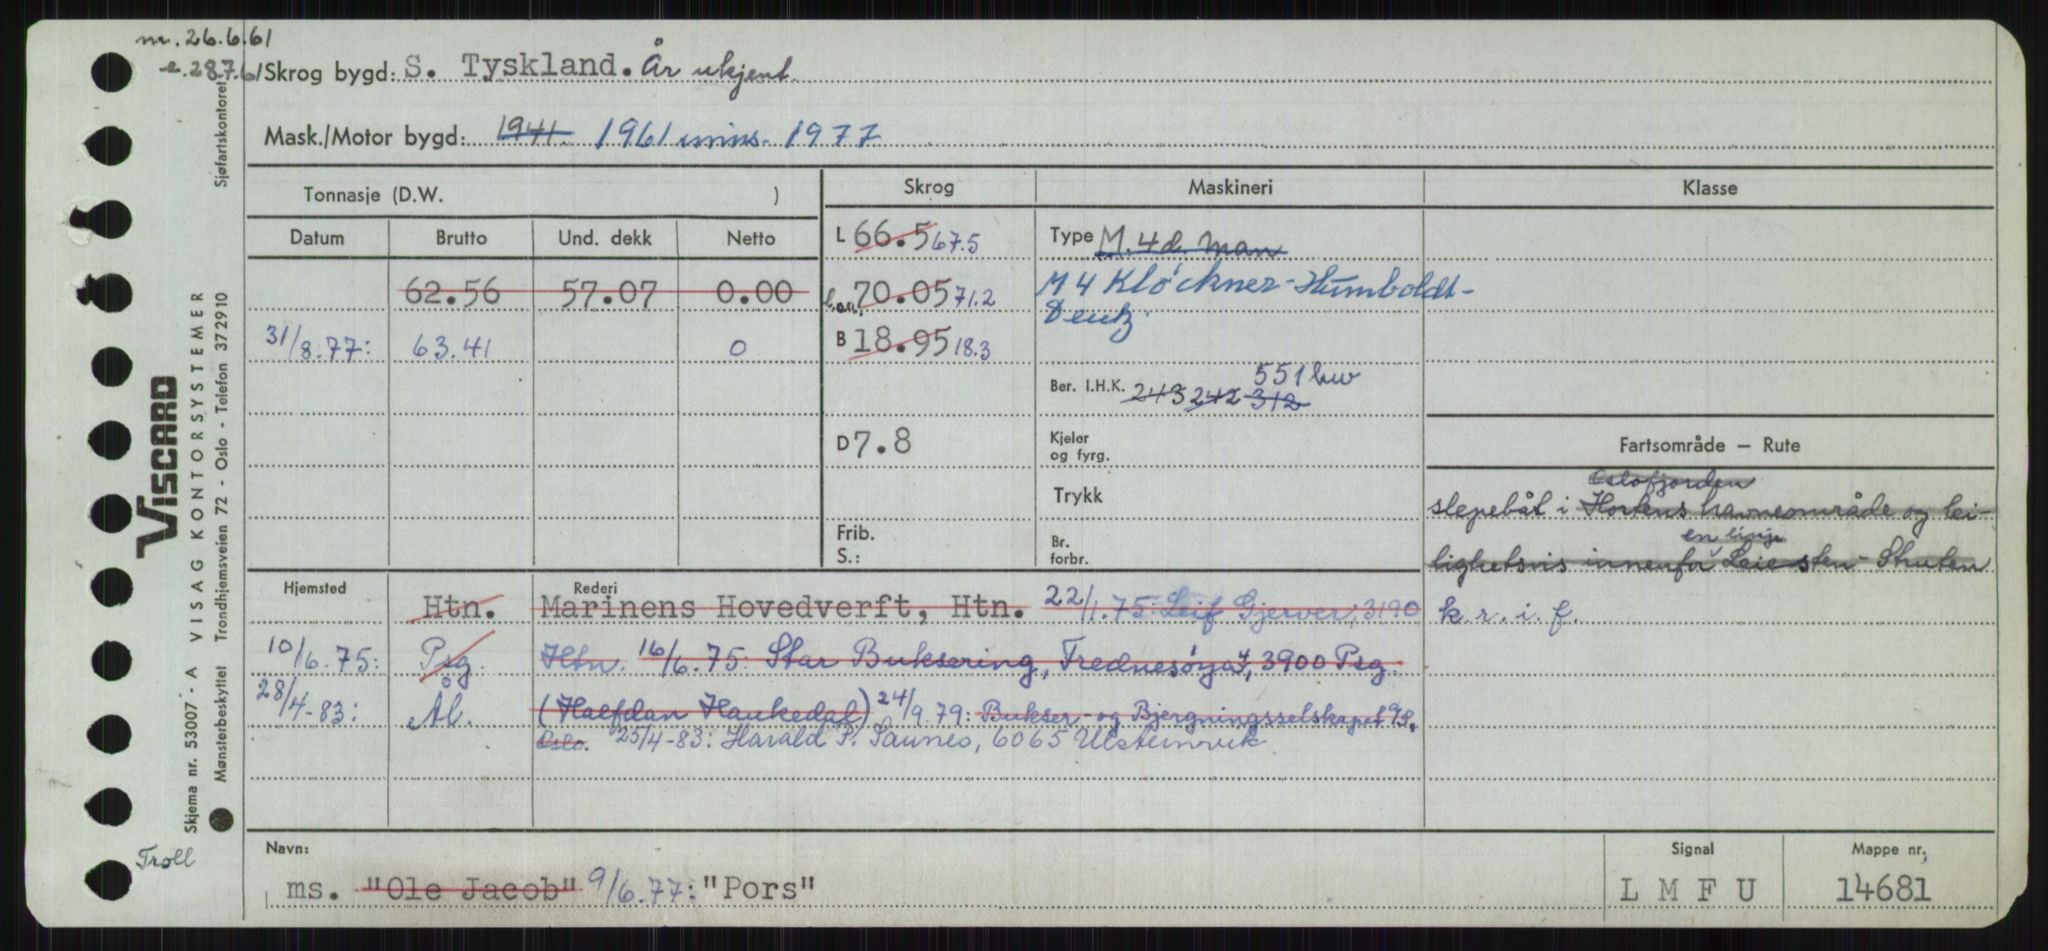 m. 26.6.61
e. 28.7.61 Skrog bygd: S. Tyskland. År ukjent.
Mask./Motor bygd: 1941. 1961 mins. 1977
Tonnasje (D.W. ) Skrog Maskineri Klasse
Datum Brutto Und. dekk Netto
L 66.5 67.5 Type M. 4 d. Man
62.56 57.07 0.00 70.05 71.2 M 4 Kløckner-Humboldt-
Deutz.
31/8.77: 63.41 0 B 18.95 18.3
Ber. I.H.K. 243 242 312 551 kw
D 7.8 Kjeler
og fyrg.
Fartsområde — Rute
Trykk
Oslofjorden
slepebåt i Hortens havneområde og lei-
Frib.
S.:
Br.
forbr.
en linje
lighetsvis innenfor Leiesten - Struten
k. r. i. f.
Hjemsted Rederi
Htn. Marinens Hovedverft, Htn. 22/1.75: Leif Gjerver, 3190
10/6.75: Psg. Htn. 16/6.75: Star Buksering, Frednesøya 7, 3900 Psg.
28/4-83: Ål. (Halfdan Haukedal) 24/9.79: Bukser- og Bjergningsselskapet
Oslo. 25/4-83: Harald P. Saunes, 6065 Ulsteinvik.
Navn: Signal Mappe nr.
ms. "Ole Jacob" 9/6.77: "Pors" L M F U 14681
Troll
VISCARD
Skjema nr. 53007 - A VISAG KONTORSYSTEMER
Mønsterbeskyttet Trondhjemsveien 72 - Oslo - Telefon 372910
Sjøfartskontoret